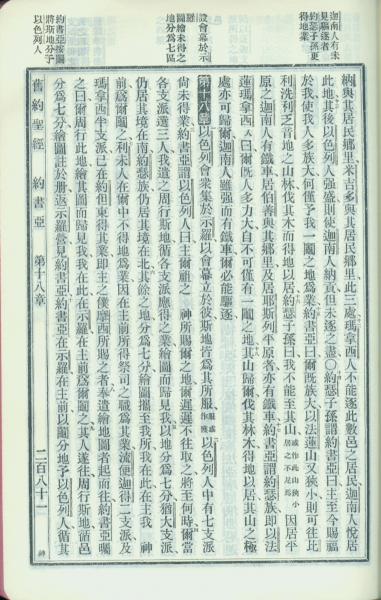 迦南人有未
見驅逐者
約瑟子孫更
得地業
設會幕於示
羅
圖繪未得之
地分為七區
約書亞按鬮
將斯地分予
以色列人
納與其居民鄉里米吉多與其居民鄉里此三處瑪拿西人不能逐此數邑之居民迦南人悅居
此地其後以色列人強盛則使迦南人納貢但未逐之盡○約瑟子孫謂約書亞曰主至今賜福
於我使我人多族大何僅予我一鬮之地為業約書亞曰爾既族大以法蓮山又狹小則可往比
利洗利乏音地之山林伐其木而得地以居約瑟子孫曰我不能至其山或作此山狹小居之不足為因居平
原之迦南人有鐵車居伯善與其鄉里及居耶斯列平原者亦有鐵車約書亞謂約瑟族即以法
蓮瑪拿西人曰爾既人多力大自不可僅有一鬮之地其山歸爾伐其林木得地以居其山之極
處亦可歸爾迦南人雖強而有鐵車爾必能驅逐
第十八章 以色列會眾集於示羅以會幕立於彼斯地皆為其所服服或作獲以色列人中有七支派
尚未得業約書亞謂以色列人曰主爾祖之 神所賜爾之地爾遲遲不往取之將至何時爾當
各支派選三人我遣之周行斯地循各支派應得之業繪圖而歸見我以地分為七分猶大支派
仍居其境在南約瑟族仍居其境在北其餘之地分為七分繪圖攜至我所我在此在主我 神
前為爾鬮之利未人在爾中不得地為業因在主前所得祭司之職為其業流便迦得二支派及
瑪拿西半支派已在約但東得其業即主之僕摩西所賜之者奉遣繪地圖者起而往約書亞囑
之曰爾周行此地繪其圖而歸見我我在此在示羅在主前為爾鬮之其人遂往周行斯地循邑
分為七分繪圖註於册返示羅營見約書亞約書亞在示羅在主前以鬮分地予以色列人循其
舊約聖經 約書亞 第十八章 二百八十一 神